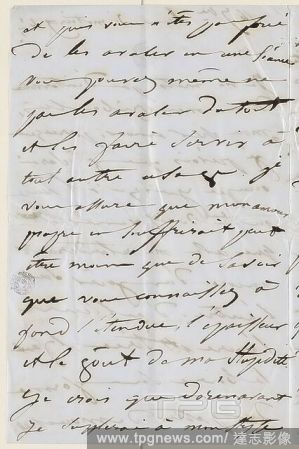 et puis vous n'êtes pas forcé
de les avaler en une séance
vous pouvez même ne
pas les avaler du tout
et les faire servir à
tout autre usage. je
vous assure que mon amour
propre en souffrirait peut
être moins que de savoir
que vous connaissez à
fond l'étendue, l'épaisseur
et le goût de ma stupidité
je crois que dorénavant
je
TPG
www.tpgnews.com/達志影像